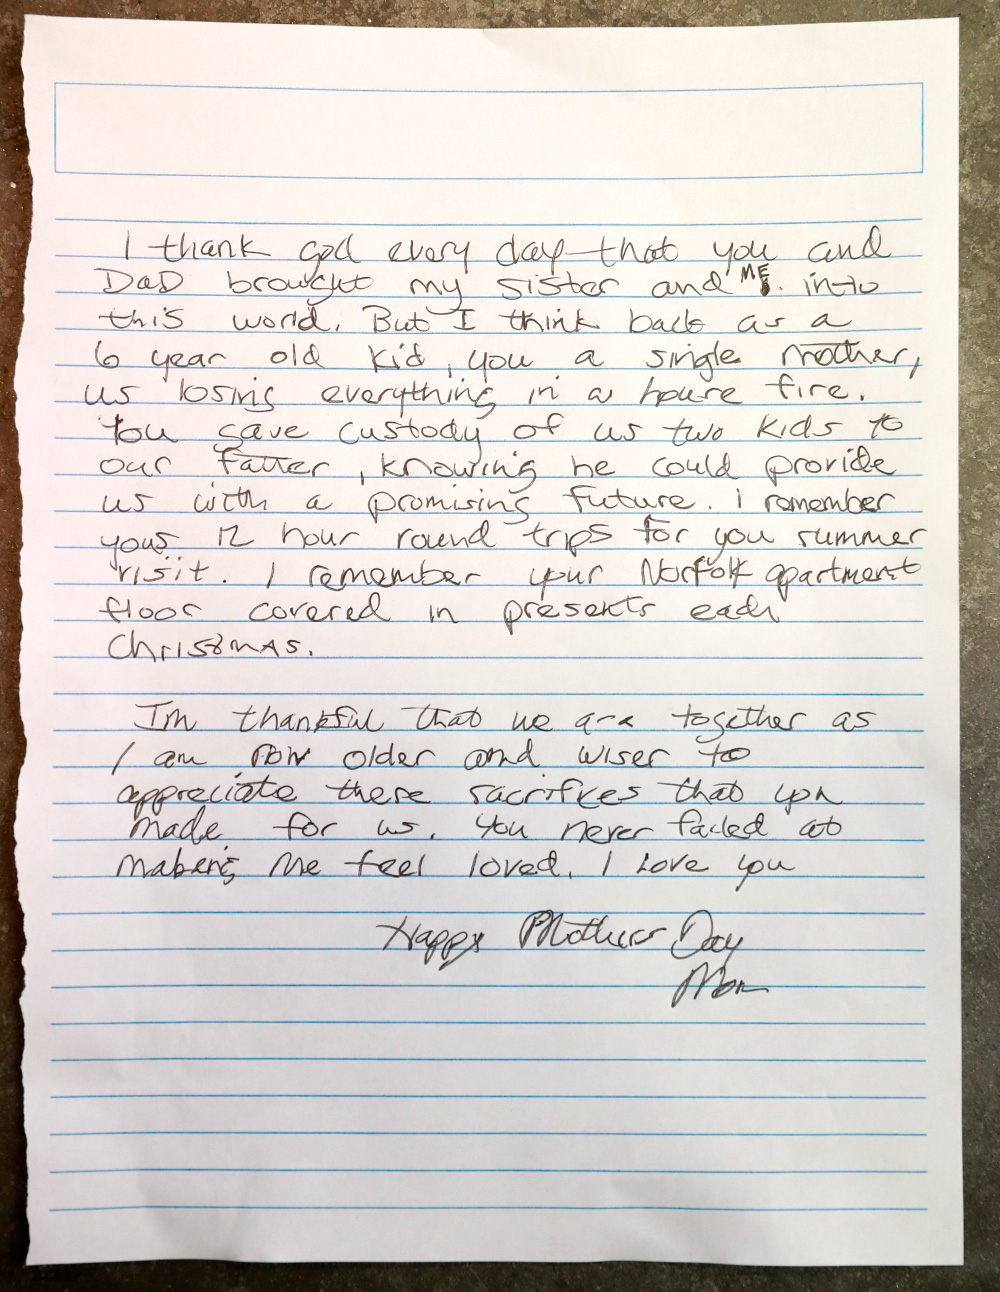 I thank god every day that you and
DaD brought my sister and ME. into
this world. But I think back as a
6 year old kid, you a single mother,
us losing everything in a house fire.
You gave custody of us two kids to
our father, knowing he could provide
us with a promising future. I remember
your 12 hour round trips for you summer
visit. I remember your Norfolk apartment
floor covered in presents each
Christmas.
Im thankful that we are together as
I am now older and wiser to
appreciate these sacrifices that you
made for us. You never failed at
making me feel loved. I Love you
Happy Mothers Day
Mom